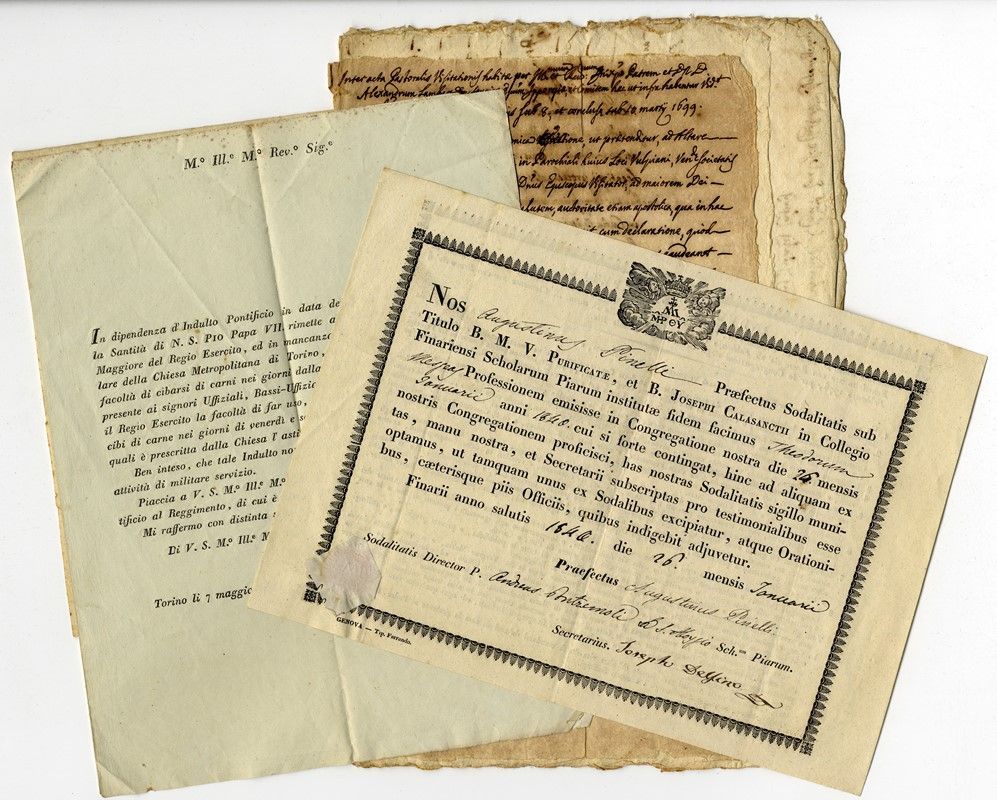 Inter acta Pastoralis Visitationis habitæ per
Alexandrum
sub 8, et conclusæ sub 20 martij 1699.
ut prætenditur, ad Altare
in Parochiali huius Loci Vulpiani, Ven.de Societatis
Dnus Episcopus Visitator, ad maiorem Dei
salutem, auctoritate etiam apostolica, qua in hac
it cum declaratione, quod
gaudeant
M.º Ill.e M.º Rev.º Sig.e
In dipendenza d'Indulto Pontificio in data de
la Santità di N. S. PIO PAPA VII. rimette a
Maggiore del Regio Esercito, ed in mancanza
lare della Chiesa Metropolitana di Torino,
facoltà di cibarsi di carni nei giorni dalla
presente ai signori Uffiziali, Bassi-Uffizia
il Regio Esercito la facoltà di far uso,
cibi di carne nei giorni di venerdì e s
quali è prescritta dalla Chiesa l'asti
Ben inteso, che tale Indulto no
attività di militare servizio.
Piaccia a V. S. M.º Ill.e M.º
tificio al Reggimento, di cui è
Mi raffermo con distinta s
Di V. S. M.º Ill.e M
Torino li 7 maggio
MI
MP ΘY
Nos Augustinus Pinelli Præfectus Sodalitatis sub
Titulo B. M. V. PURIFICATE, et B. JOSEPHI CALASANCTII in Collegio
Finariensi Scholarum Piarum institutæ fidem facimus Theodorum
Professionem emisisse in Congregatione nostra die 26 mensis
Januarii anni 1840. cui si forte contingat, hinc ad aliquam ex
nostris Congregationem proficisci, has nostras Sodalitatis sigillo muni-
tas, manu nostra, et Secretarii subscriptas pro testimonialibus esse
optamus, ut tamquam unus ex Sodalibus excipiatur, atque Orationi-
bus, cæterisque piis Officiis, quibus indigebit adjuvetur.
Finarii anno salutis 1840. die 26. mensis Januarii
Præfectus Augustinus Pinelli.
Sodalitatis Director P. Andreas Pontremoli a S. Aloysio Sch.m Piarum.
Secretarius. Joseph Delfino
GENOVA — Tip. Ferrando.